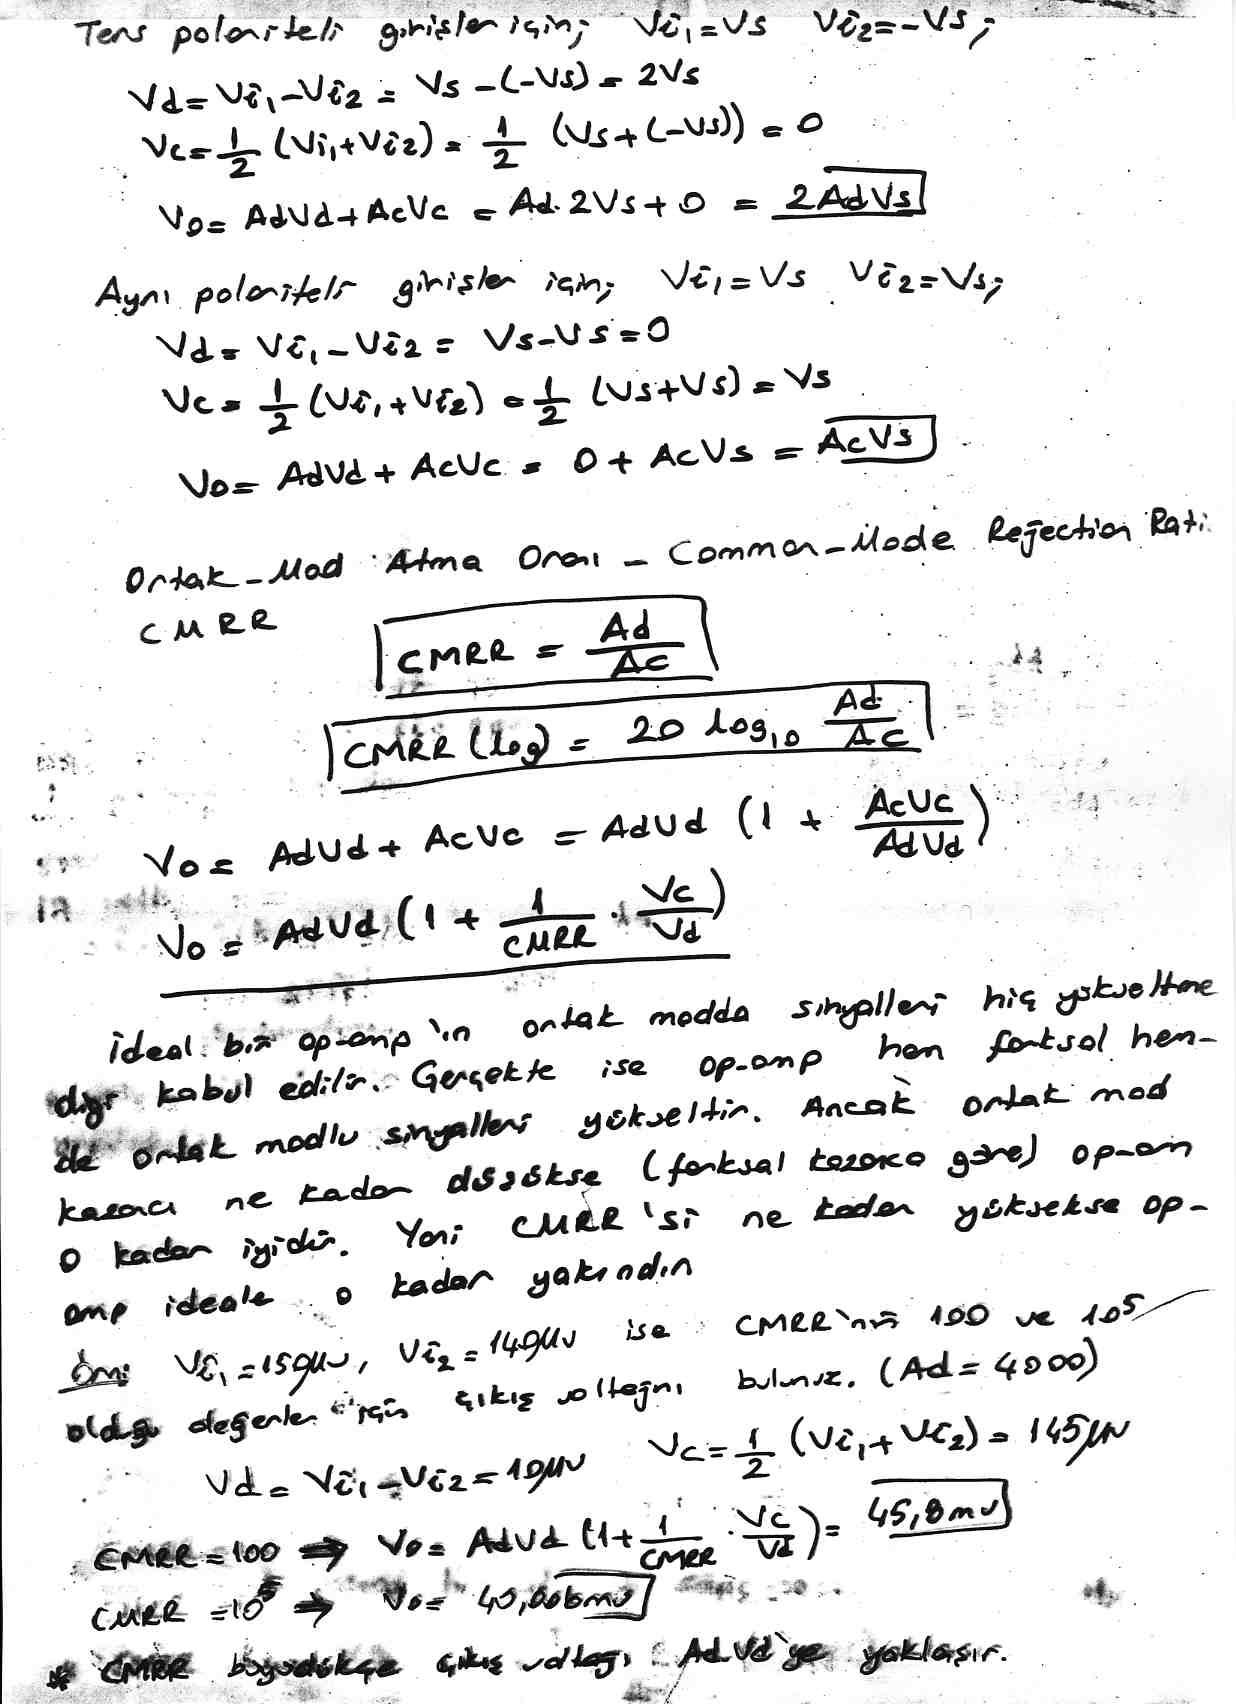 Ters polariteli girişler için; Vi₁=Vs Vi₂=-Vs;
Vd = Vi₁-Vi₂ = Vs-(-Vs) = 2Vs
Vc = 1/2 (Vi₁+Vi₂) = 1/2 (Vs+(-Vs)) = 0
Vo = AdVd+AcVc = Ad.2Vs+0 = 2AdVs
Aynı polariteli girişler için; Vi₁=Vs Vi₂=Vs;
Vd = Vi₁-Vi₂ = Vs-Vs=0
Vc = 1/2 (Vi₁+Vi₂) = 1/2 (Vs+Vs) = Vs
Vo = AdVd + AcVc = 0 + AcVs = AcVs
Ortak-Mod Atma Oranı - Common-Mode Rejection Rati
CMRR
CMRR = Ad/Ac
CMRR (log) = 20 log₁₀ Ad/Ac
Vo = AdVd + AcVc = AdVd (1 + AcVc/AdVd)
Vo = AdVd (1 + 1/CMRR . Vc/Vd)
ideal bir op-amp'ın ortak modda sinyalleri hiç yükseltme
diği kabul edilir. Gerçekte ise op-amp hem farksal hem-
de ortak modlu sinyalleri yükseltir. Ancak ortak mod
kazancı ne kadar düşükse (farksal kazanca göre) op-am
o kadar iyidir. Yani CMRR'si ne kadar yüksekse op-
amp ideale o kadar yakındır
Örn: Vi₁=150µv, Vi₂=140µv ise CMRR'nin 100 ve 10⁵
olduğu değerler için çıkış voltajını bulunuz. (Ad=4000)
Vd = Vi₁-Vi₂ = 10µv Vc = 1/2 (Vi₁+Vi₂) = 145µv
CMRR = 100 ⇒ Vo = AdVd (1+ 1/CMRR . Vc/Vd) = 45,8mv
CMRR = 10⁵ ⇒ Vo = 40,006mv
* CMRR büyüdükçe çıkış voltajı AdVd'ye yaklaşır.